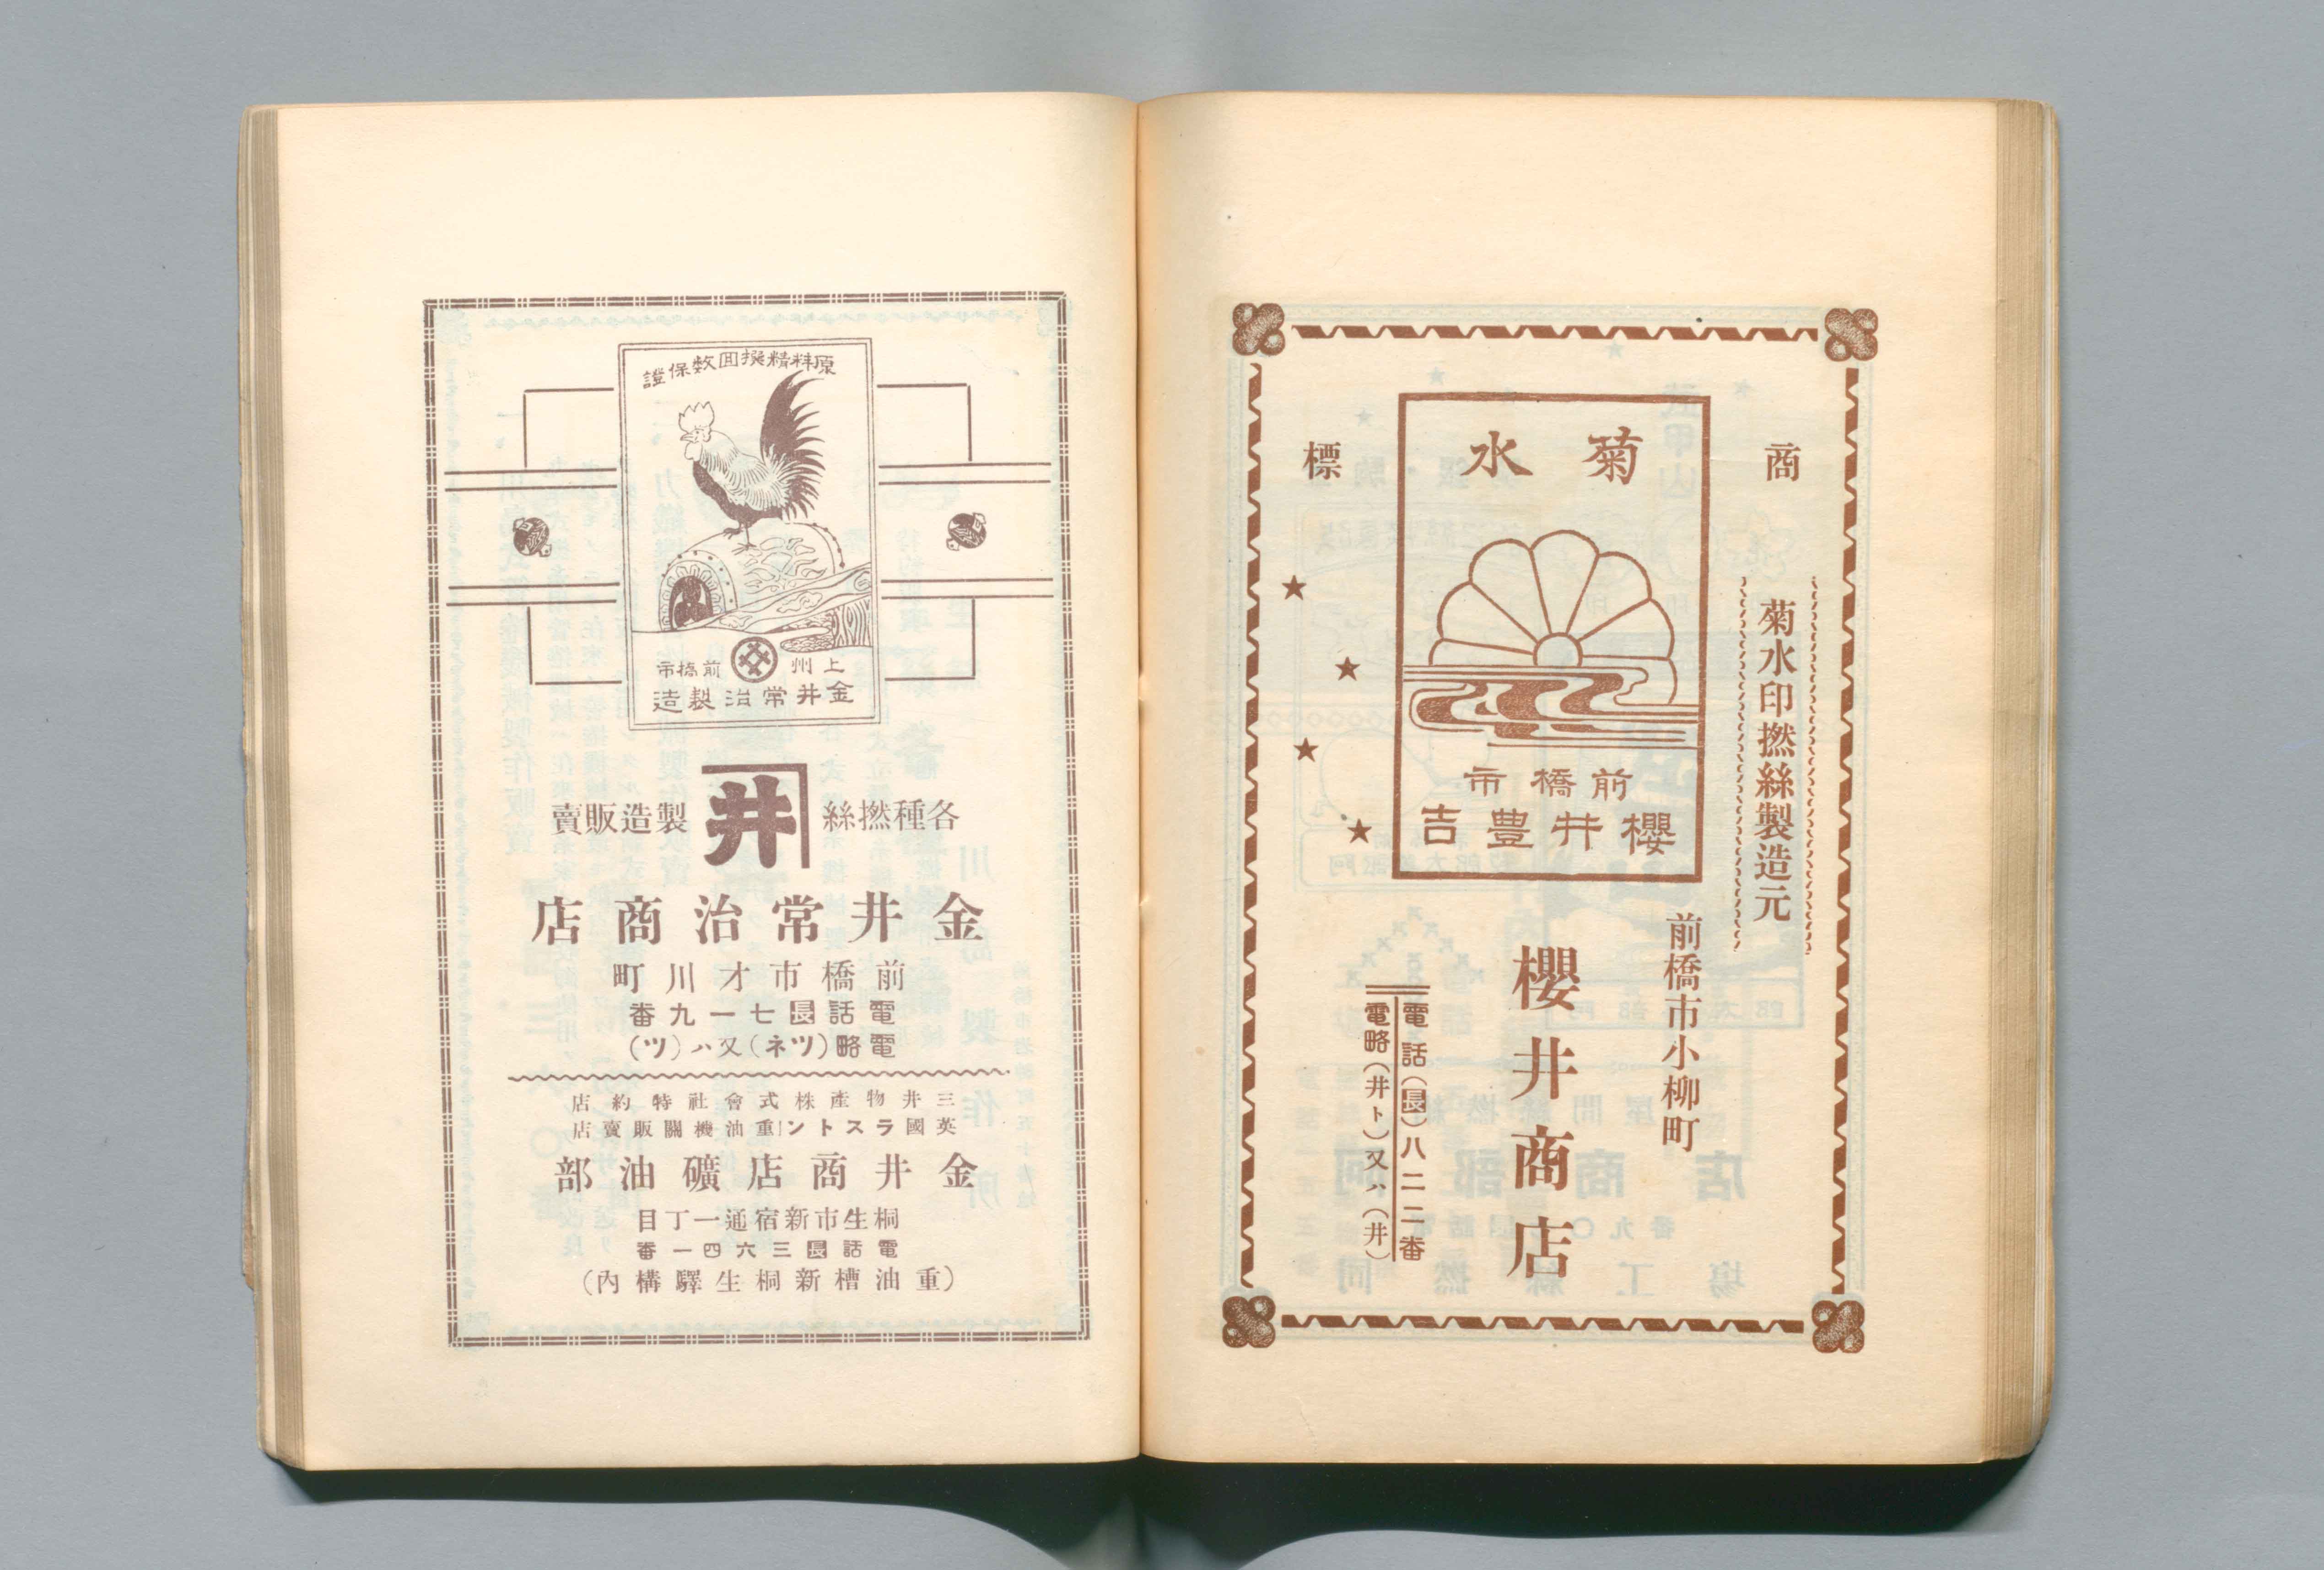 商標
菊水
前橋市
櫻井豊吉
菊水印撚絲製造元
前橋市小柳町
櫻井商店
電話(長)八二二番
電略(井ト)又ハ(井)
原料精撰回数保證
上州前橋市
金井常治製造
各種撚絲
井
製造販賣
金井常治商店
前橋市才川町
電話長七一九番
電略(ツネ)又ハ(ツ)
三井物産株式會社特約店
英國ラストン重油機關販賣店
金井商店礦油部
桐生市新宿通一丁目
電話長三六四一番
(重油槽新桐生驛構內)